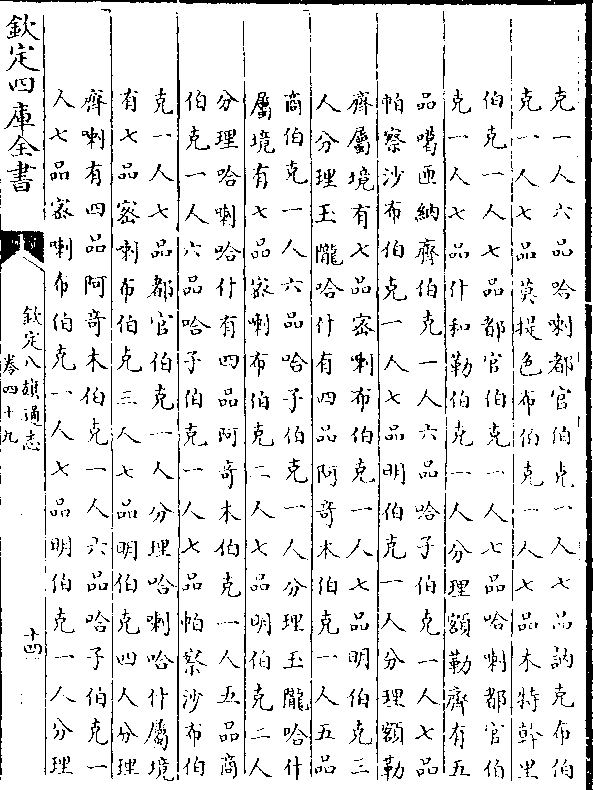 克一人六品哈喇都官伯克一人七品訥克布伯
克一人七品莫提色布伯克一人七品木特斡里
伯克一人七品都官伯克一人七品哈喇都官伯
克一人七品什和勒伯克一人分理額勒齊有五
品噶匝納齊伯克一人六品哈子伯克一人七品
帕察沙布伯克一人七品明伯克一人分理額勒
齊屬境有七品密喇布伯克一人七品明伯克三
人分理玉隴哈什有四品阿竒木伯克一人五品
商伯克一人六品哈子伯克一人分理玉隴哈什
屬境有七品密喇布伯克二人七品明伯克二人
分理哈喇哈什有四品阿竒木伯克一人五品商
伯克一人六品哈子伯克一人七品帕察沙布伯
克一人七品都官伯克一人分理哈喇哈什屬境
有七品密喇布伯克三人七品明伯克四人分理
齊喇有四品阿竒木伯克一人六品哈子伯克一
人七品密喇布伯克一人七品明伯克一人分理
欽定四庫全書
欽定八旗通志
卷四十九
十四